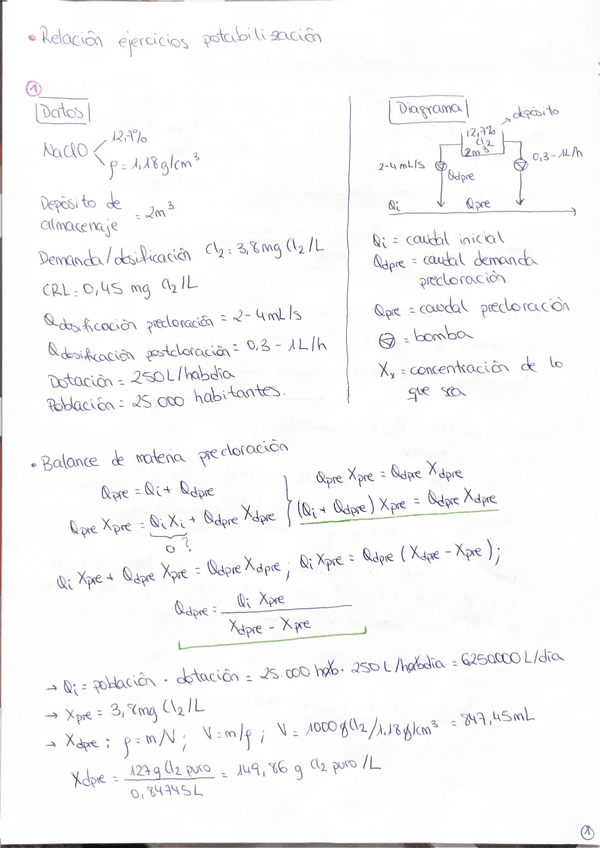 • Relación ejercicios potabilización
①
Datos
NaClO < 12,7%
ρ = 1,18g/cm³
Depósito de almacenaje = 2m³
Demanda/dosificación Cl₂ = 3,8mg Cl₂/L
CRL = 0,45 mg Cl₂/L
Qdosificación precloración = 2-4mL/s
Qdosificación postcloración = 0,3 - 1L/h
Dotación = 250L/habdia
Población = 25.000 habitantes.
Diagrama
→ depósito
12,7%
Cl₂
2m³
2-4 mL/s
Qdpre
0,3-1L/h
Qi
Qpre
Qi = caudal inicial
Qdpre = caudal demanda
precloración
Qpre = caudal precloración
= bomba
Xₓ = concentración de lo
que sea
• Balance de materia precloración
Qpre = Qi + Qdpre
Qpre Xpre = Qi Xi + Qdpre Xdpre
0?
Qpre Xpre = Qdpre Xdpre
(Qi + Qdpre) Xpre = Qdpre Xdpre
Qi Xpre + Qdpre Xpre = Qdpre Xdpre ; Qi Xpre = Qdpre (Xdpre - Xpre) ;
Qdpre = Qi Xpre / Xdpre - Xpre
→ Qi = población · dotación = 25.000 hab · 250 L/habdia = 6250000 L/día
→ Xpre = 3,8mg Cl₂/L
→ Xdpre : ρ = m/V ; V = m/ρ ; V = 1000 g Cl₂/1,18g/cm³ = 847,45mL
Xdpre = 127 g Cl₂ puro / 0,84745L = 149,86 g Cl₂ puro/L
①